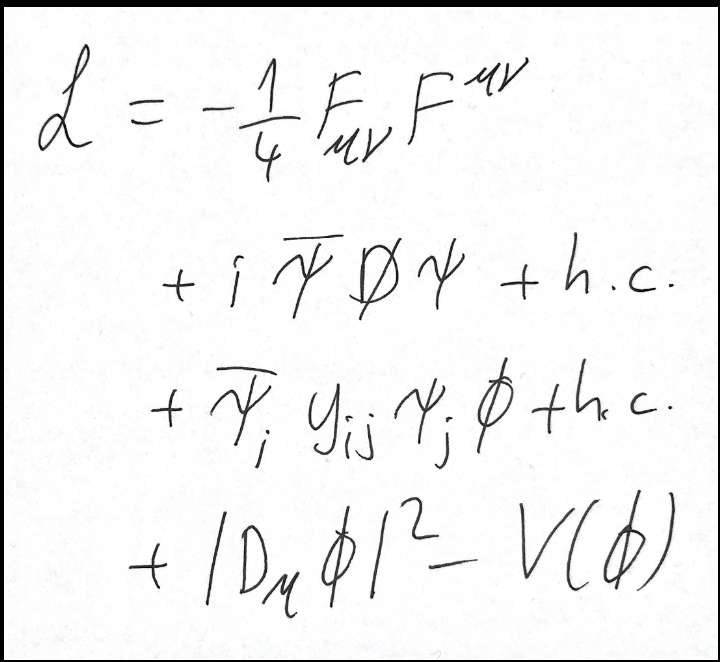 ℒ = -1/4 F_μν F^μν
+ i ψ̄ D̸ ψ + h.c.
+ ψ̄_i y_ij ψ_j ϕ + h.c.
+ |D_μ ϕ|² - V(ϕ)